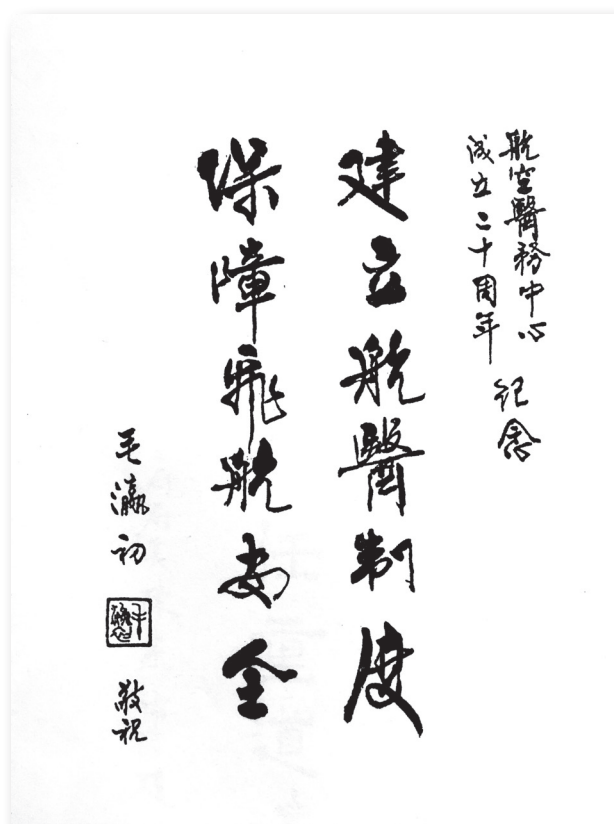 航空醫務中心
成立二十周年
紀念
建立航醫制度
保障飛航安全
毛瀛初
敬祝